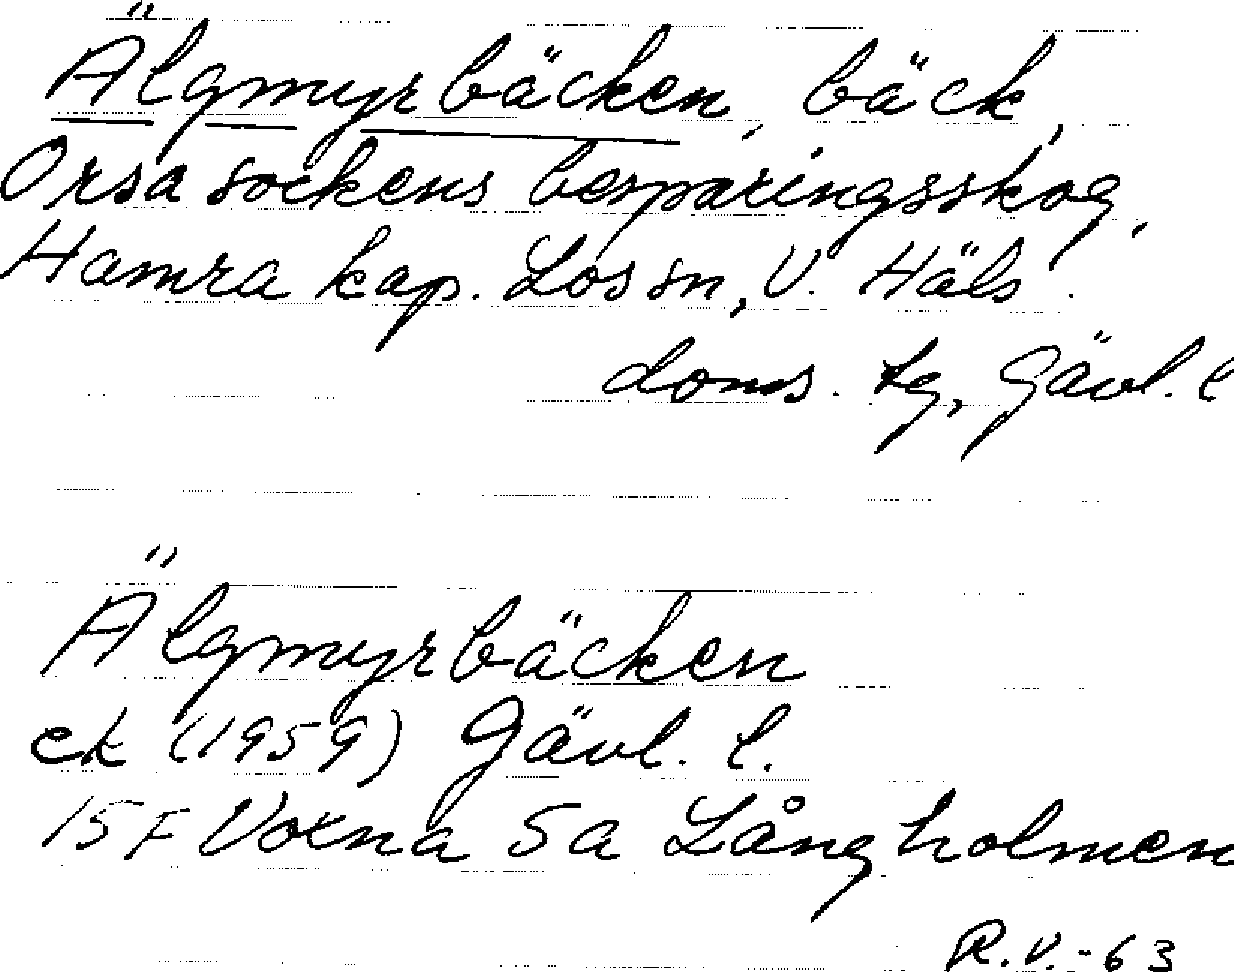 Älgmyrbäcken, bäck,
Orsa sockens besparingsskog,
Hamra kap. Los sn, V. Häls.
doms. tg, Gävl. l
Älgmyrbäcken
ek (1959) Gävl. l.
15 F Voxna 5a Långholmen
R.V.-63